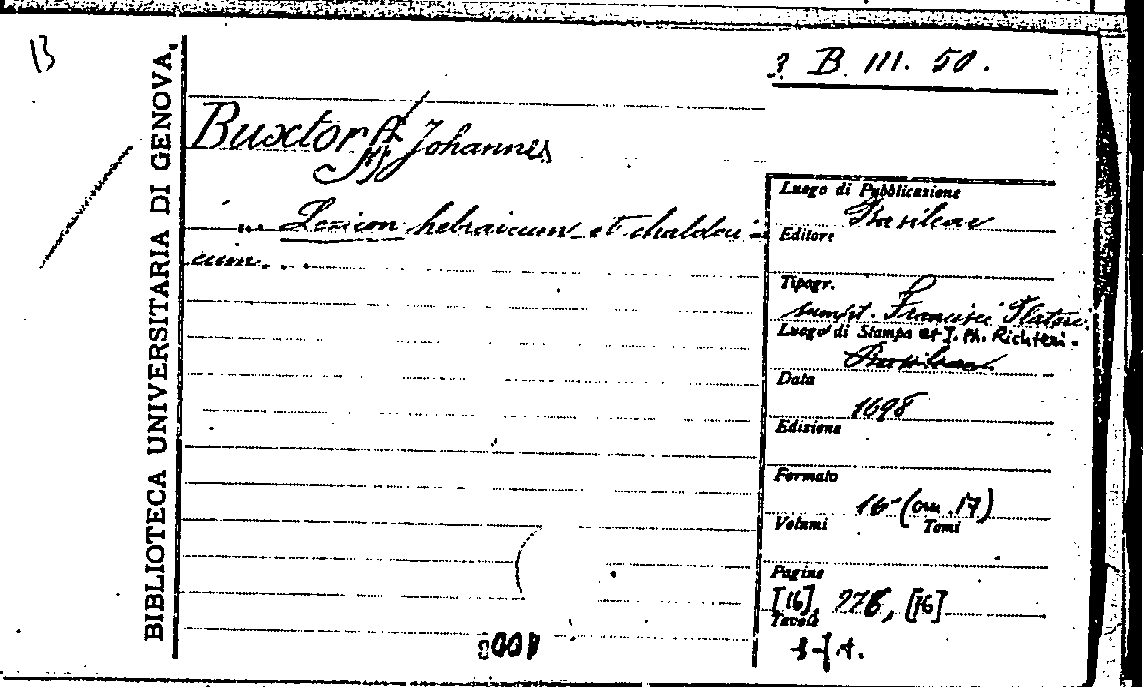 B
BIBLIOTECA UNIVERSITARIA DI GENOVA.
3. B. III. 50.
Buxtorff Johannes
... Lexicon hebraicum et chaldai-
cum. . .
Luogo di Pubblicazione
Basileae
Editore
Tipogr.
sumpt. Francisci Plateri
Luogo di Stampa et J. Ph. Richteri.
Basileae
Data
1698
Edizione
Formato
16° (cm. 17)
Volumi Tomi
Pagine
[16], 778, [76]
Tavole